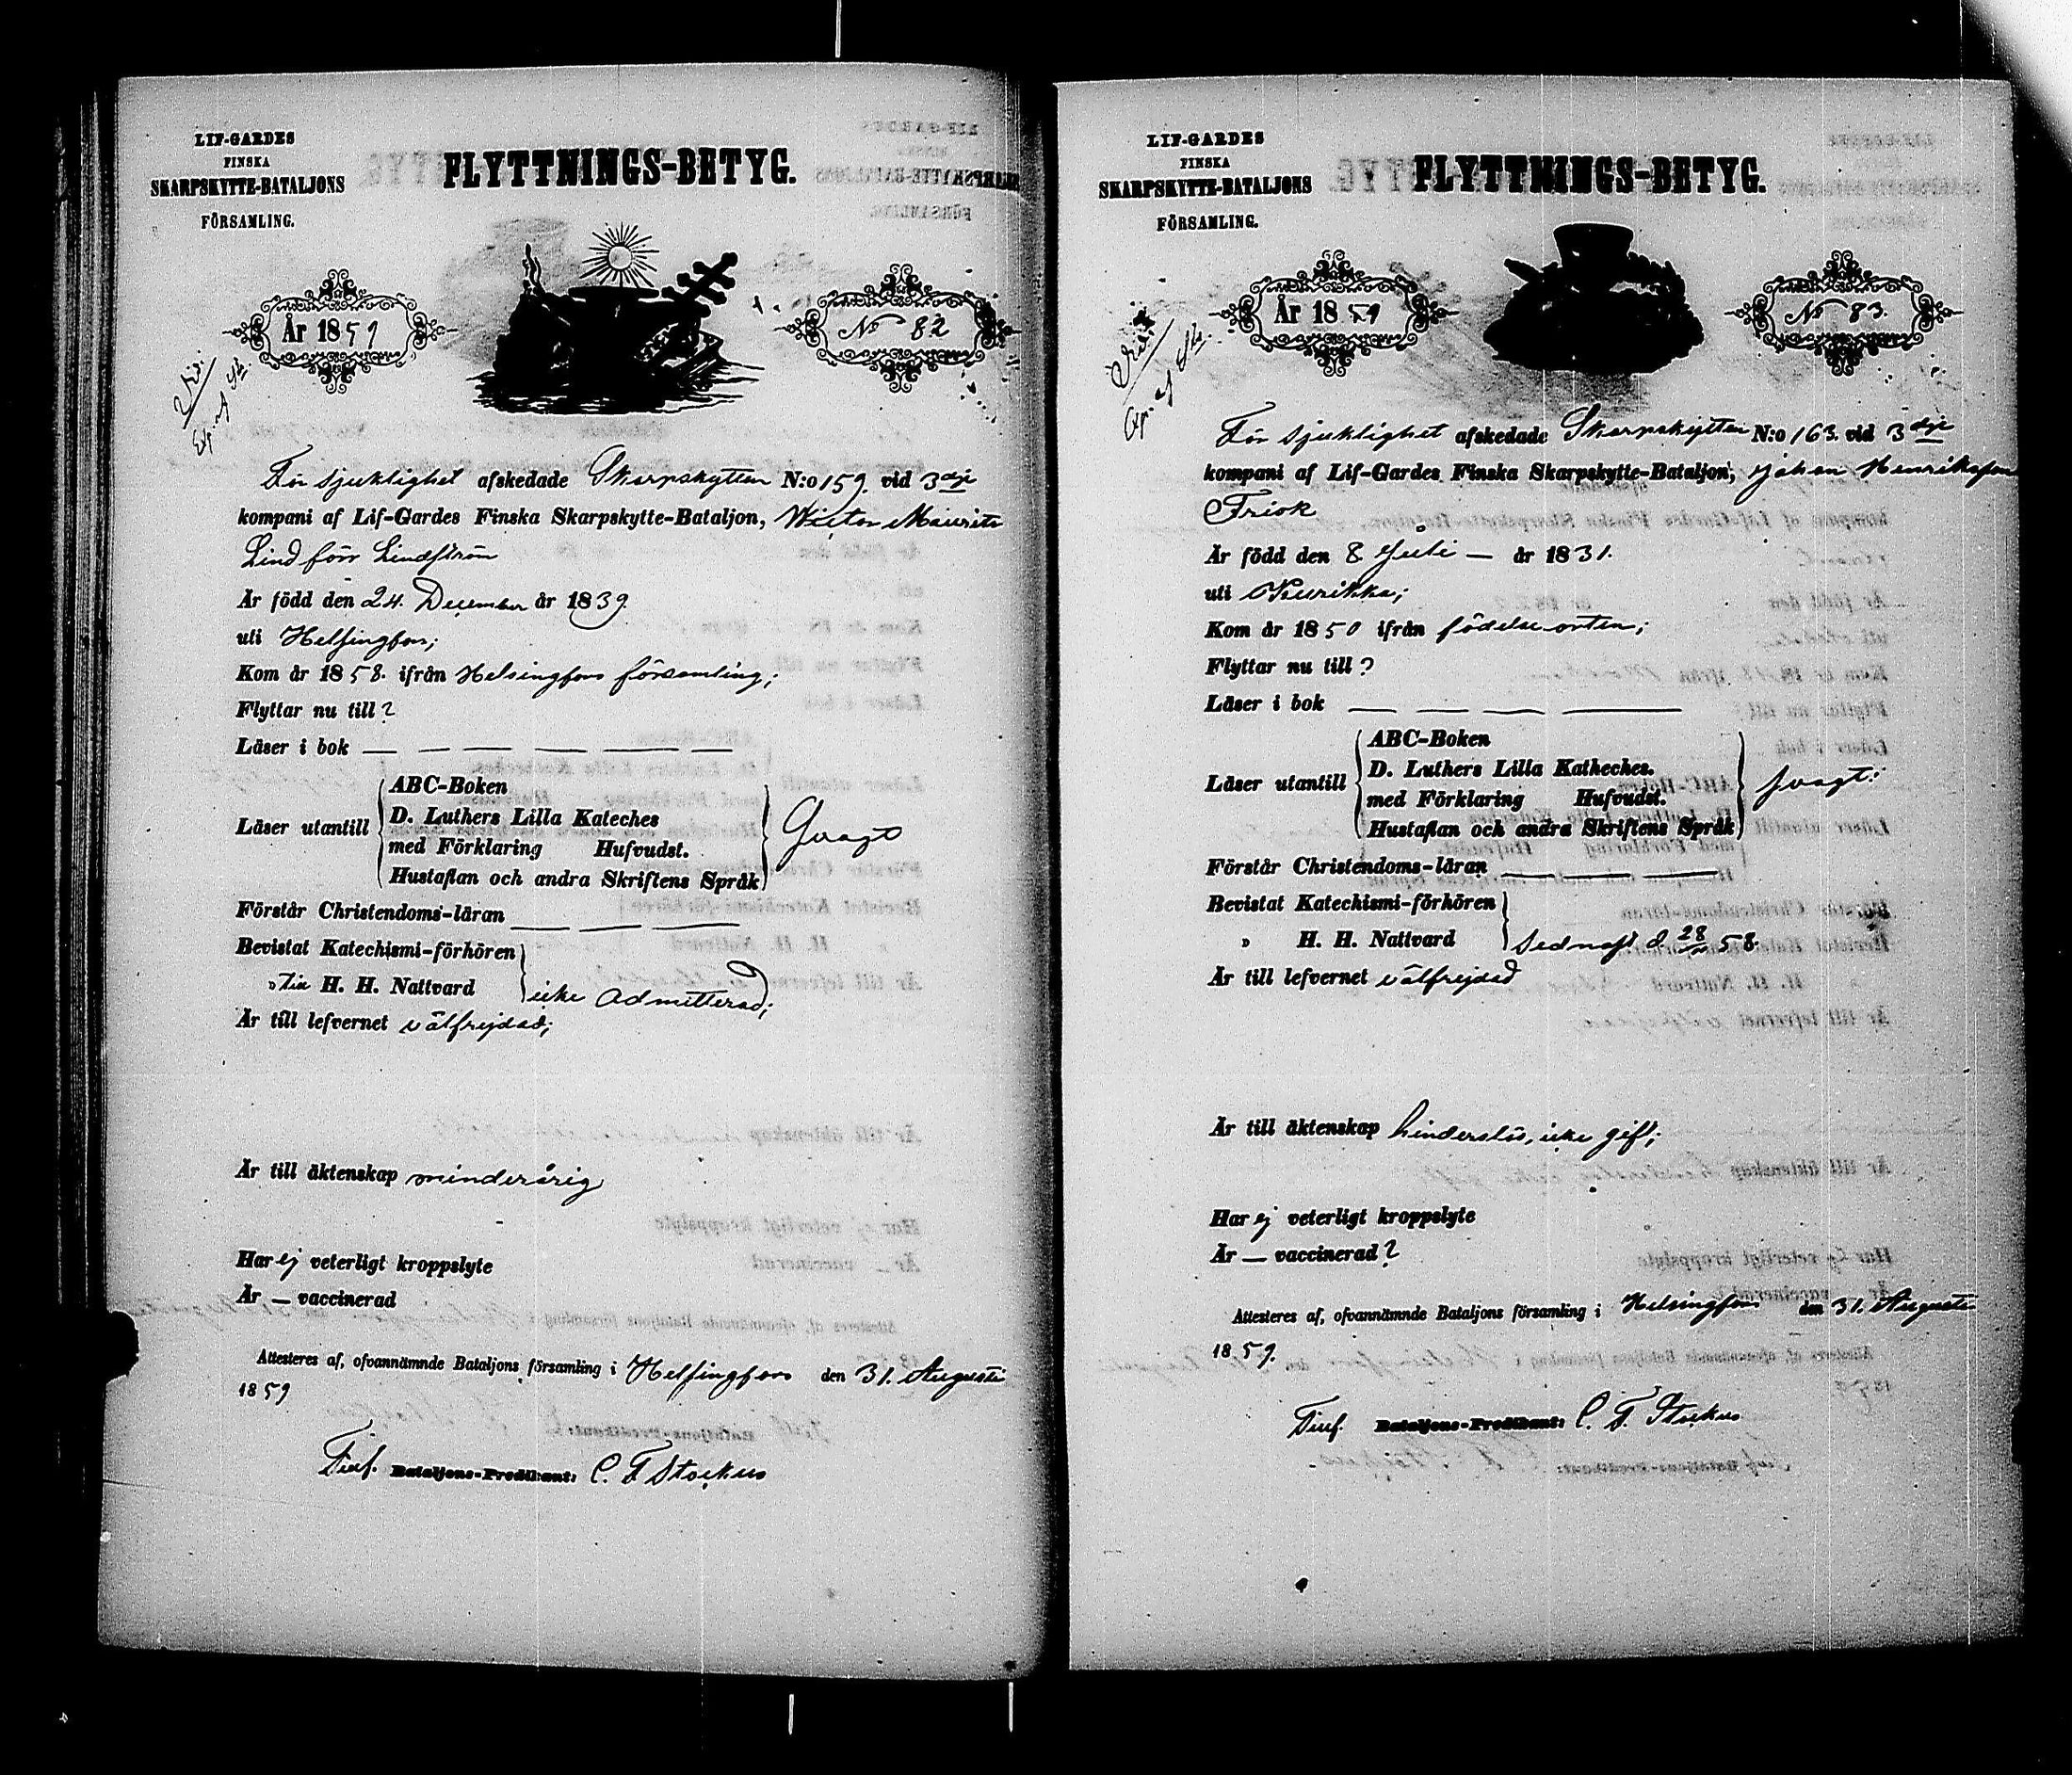 LIF-GARDES
FINSKA
SKARPSKYTTE-BATALJONS
FÖRSAMLING.
FLYTTNINGS-BETYG.
År 1859
No 82
För sjuklighet afskedade Skarpskytten N:o 159. vid 3dje
kompani af Lif-Gardes Finska Skarpskytte-Bataljon, Wictor Maurits
Lind förr Lindström
Är född den 24. December år 1839.
uti Helsingfors;
Kom år 1858. ifrån Helsingfors församling;
Flyttar nu till?
Läser i bok — — — — — —
Läser utantill
ABC-Boken
D. Luthers Lilla Kateches
med Förklaring Hufvudst.
Hustaflan och andra Skriftens Språk
Svagt
Förstår Christendoms-läran — — —
Bevistat Katechismi-förhören
" Till H. H. Nattvard
icke admitterad;
Är till lefvernet välfrejdad;
Är till äktenskap minderårig
Har ej veterligt kroppslyte
Är — vaccinerad
Attesteres af, ofvannämnde Bataljons församling i Helsingfors den 31. Augusti
1859
Bataljons-Predikant: C. F. Stockus
LIF-GARDES
FINSKA
SKARPSKYTTE-BATALJONS
FÖRSAMLING.
FLYTTNINGS-BETYG.
År 1859
No 83.
För sjuklighet afskedade Skarpskytten N:o 163. vid 3dje
kompani af Lif-Gardes Finska Skarpskytte-Bataljon, Johan Henriksson
Frisk
Är född den 8 Juli — år 1831.
uti Kaurikka;
Kom år 1850 ifrån födelseorten;
Flyttar nu till?
Läser i bok — — — —
Läser utantill
ABC-Boken
D. Luthers Lilla Katheches.
med Förklaring Hufvudst.
Hustaflan och andra Skriftens Språk
svagt:
Förstår Christendoms-läran — — —
Bevistat Katechismi-förhören
" H. H. Nattvard
sednast d. 28 58.
Är till lefvernet välfrejdad
Är till äktenskap hinderslös, icke gift;
Har ej veterligt kroppslyte
Är — vaccinerad?
Attesteres af, ofvannämnde Bataljons församling i Helsingfors den 31. Augusti
1859.
Bataljons-Predikant: C. F. Stockus